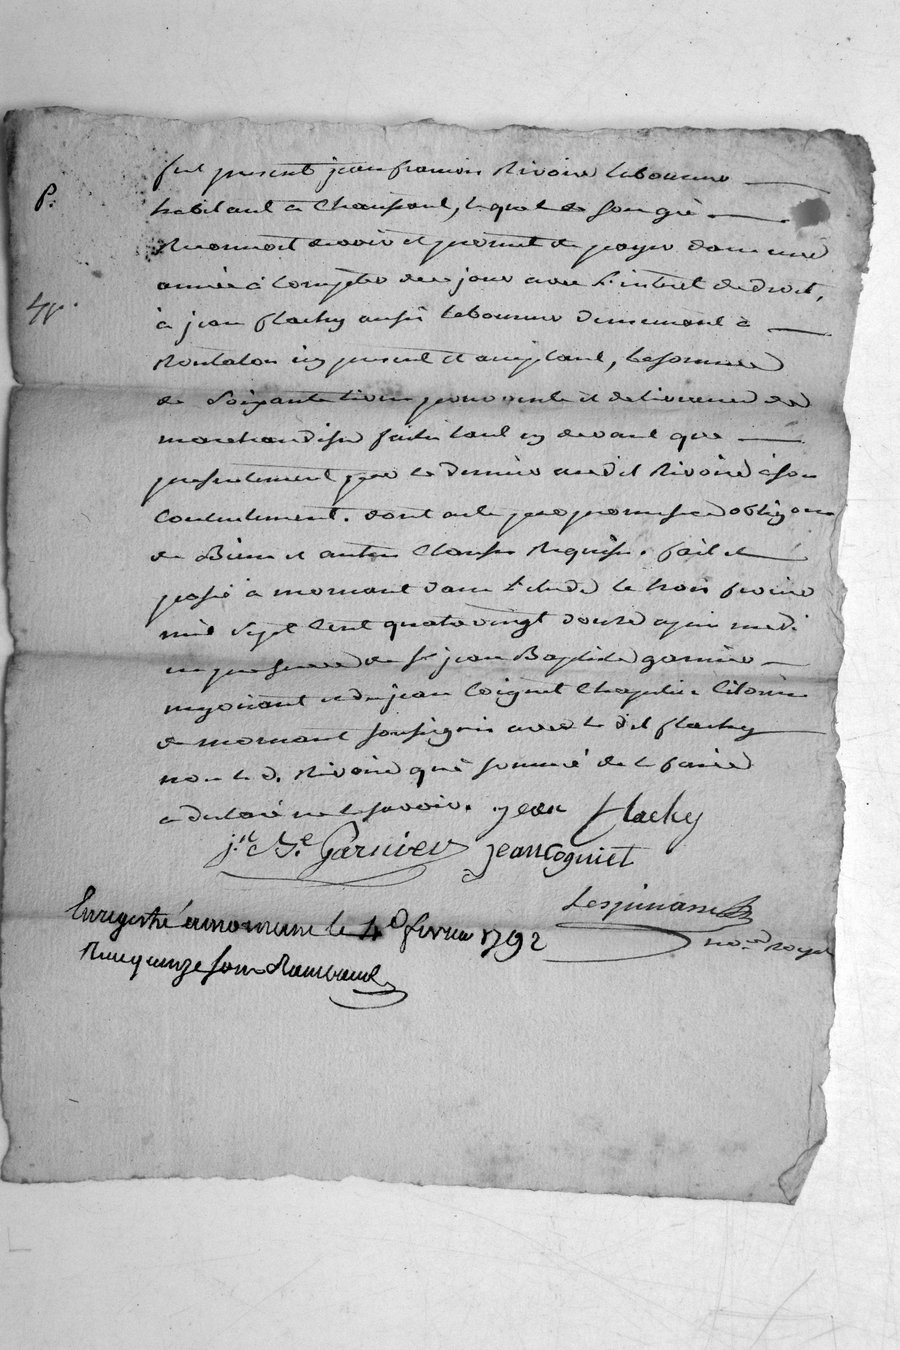 P.
fut present jean francois Rivoire laboureur
habitant à Chaussant, lequel de son gré
reconnoit devoir et promet de payer dans une
année à compter de ce jour avec l'interet de droit,
à jean flachy aussi laboureur demeurant à
Rontalon icy present et acceptant, la somme
de soixante livres pour vente et delivrance de
marchandise faite tant cy devant que
presentement par le dernier audit Rivoire à son
contentement. dont acte par promesse obligaon
de Biens et autres Clauses Requises. fait et
passé à mornant dans l'etude le trois fevrier
mil sept cent quatre vingt douze après midi
en presence de sr jean Baptiste garnier
negotiant et de jean Coignet Chapelier Citoiens
de mornant soussignés avec le dit flachy
non le d. Rivoire qui sommé de le faire
a declaré ne le savoir. jean flachy
j.n B.te Garnier jean Cogniet
Lespinasse
no.re royal
Enregistré à mornant le 4 fevrier 1792
Reçu quinze sous Rambaud